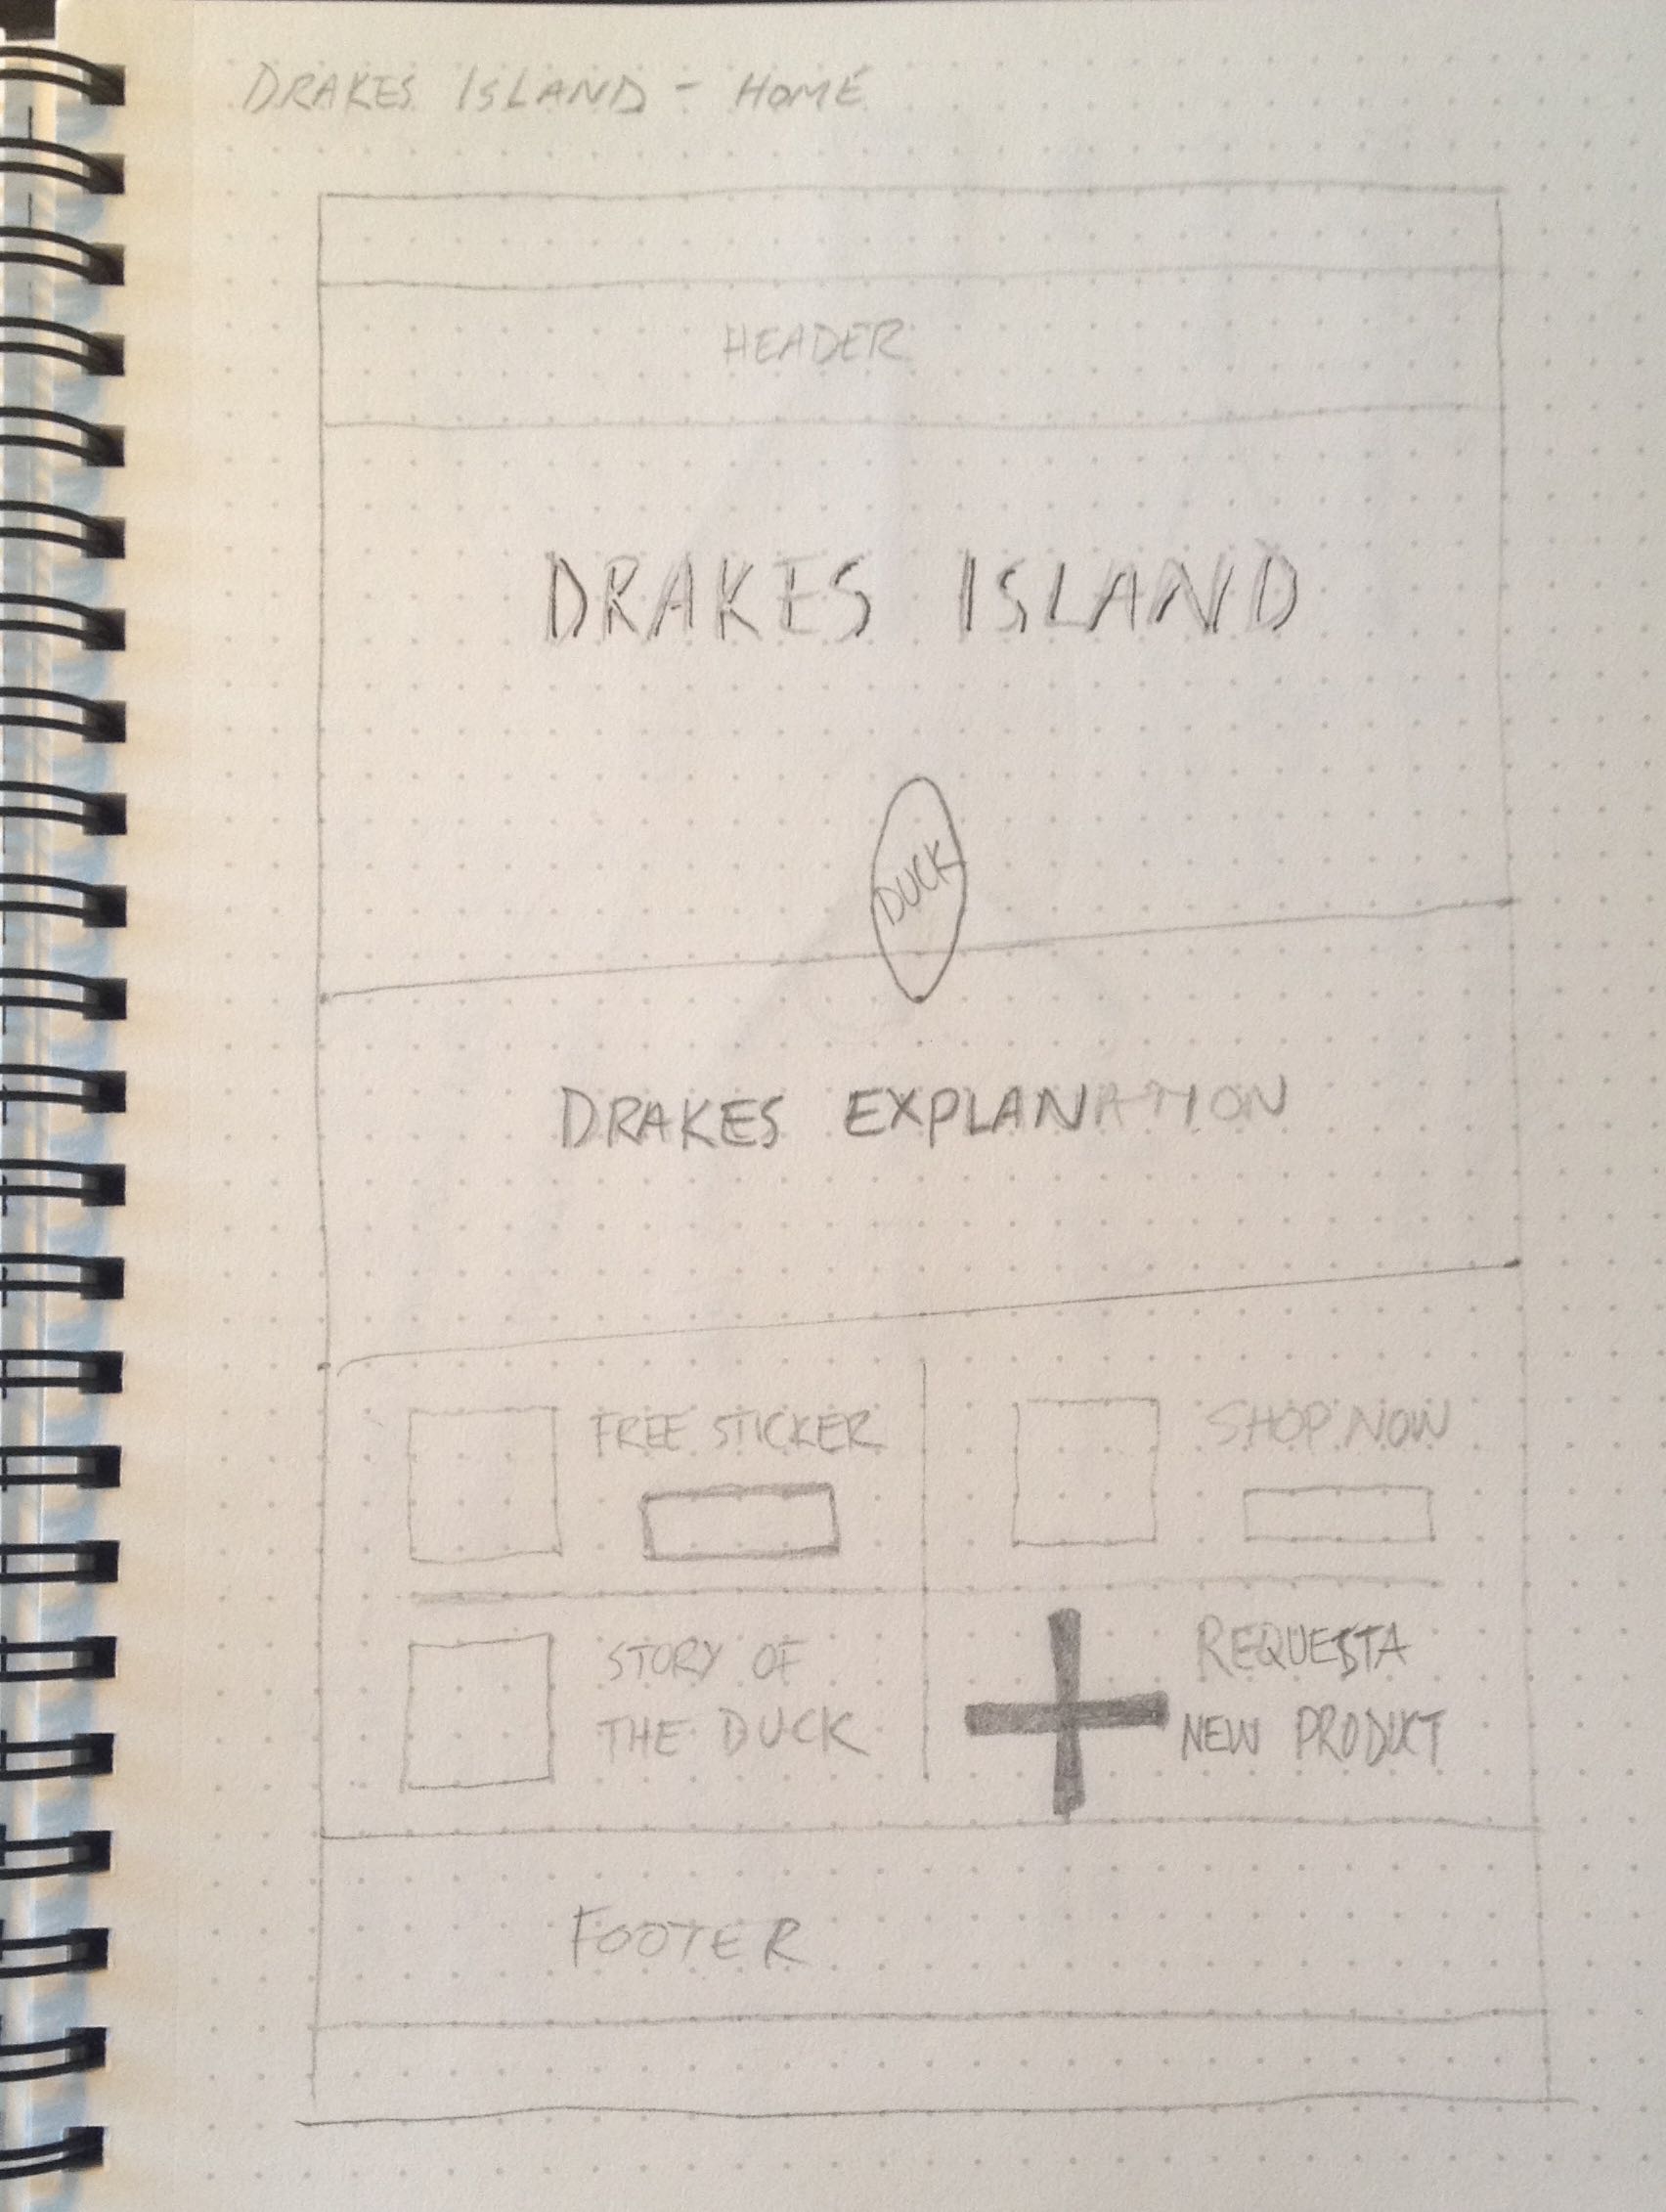 DRAKES ISLAND - HOME
HEADER
DRAKES ISLAND
DUCK
DRAKES EXPLANATION
FREE STICKER
SHOP NOW
STORY OF
THE DUCK
REQUEST A
NEW PRODUCT
FOOTER